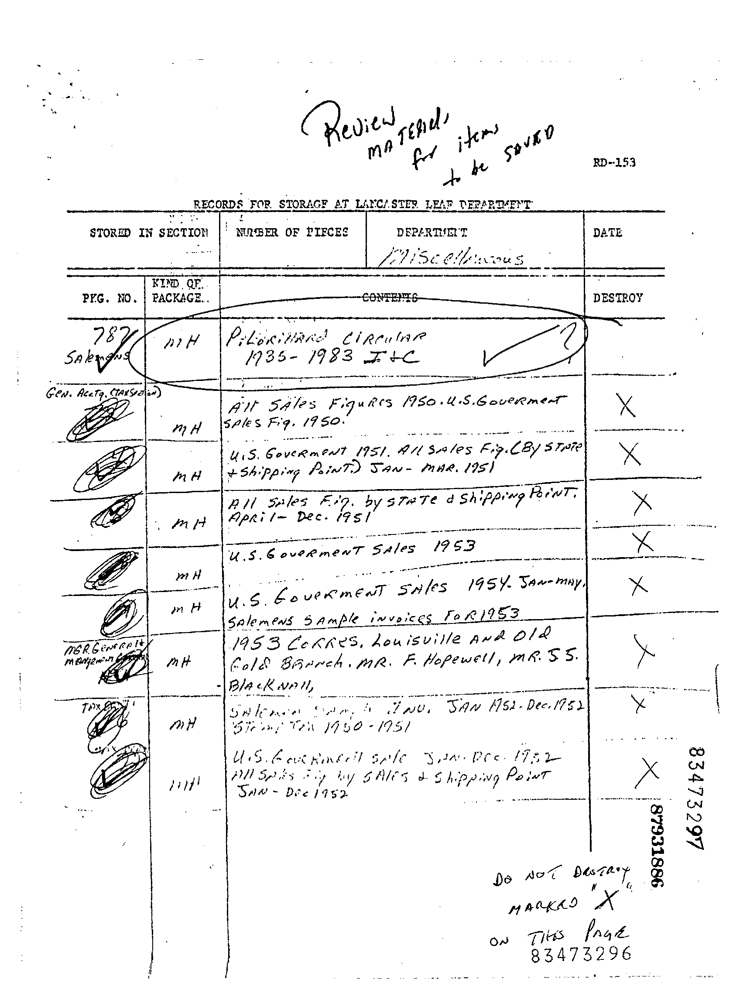 Review
MATERIALS
for items
to be SAVED
RD--153
RECORDS FOR STORAGE AT LANCASTER LEAF DEPARTMENT
STORED IN SECTION NUMBER OF PIECES DEPARTMENT DATE
Miscellaneous
KIND OF
PKG. NO. PACKAGE. CONTENTS DESTROY
787 MH P. Lorillard Circular ?
SAlemens 1935-1983 I&C
Gen. Acctg.
mH All SAles Figures 1950. U.S. Goverment X
SAles Fig. 1950.
mH U.S. Goverment 1951. All SAles Fig. (By STATE X
+ Shipping Point.) JAN - MAR. 1951
mH All SAles Fig. by STATE & Shipping Point. X
April - Dec. 1951
mH U.S. Goverment SAles 1953 X
mH U.S. Goverment SAles 1954. JAN-MAY. X
SAlemens SAmple invoices FOR 1953
mH 1953 Corres. Louisville AND Old X
Gold BRANCH. MR. F. Hopewell, MR. J S.
BLACKNAll,
MH JAN 1952 - Dec. 1952 X
1950-1951
U.S. Goverment sale JAN-Dec. 1952
mH All SAles Fig by SAles & Shipping Point X
JAN - Dec 1952
83473297
87931886
DO NOT DESTROY
MARKED "X"
ON THIS PAGE
83473296